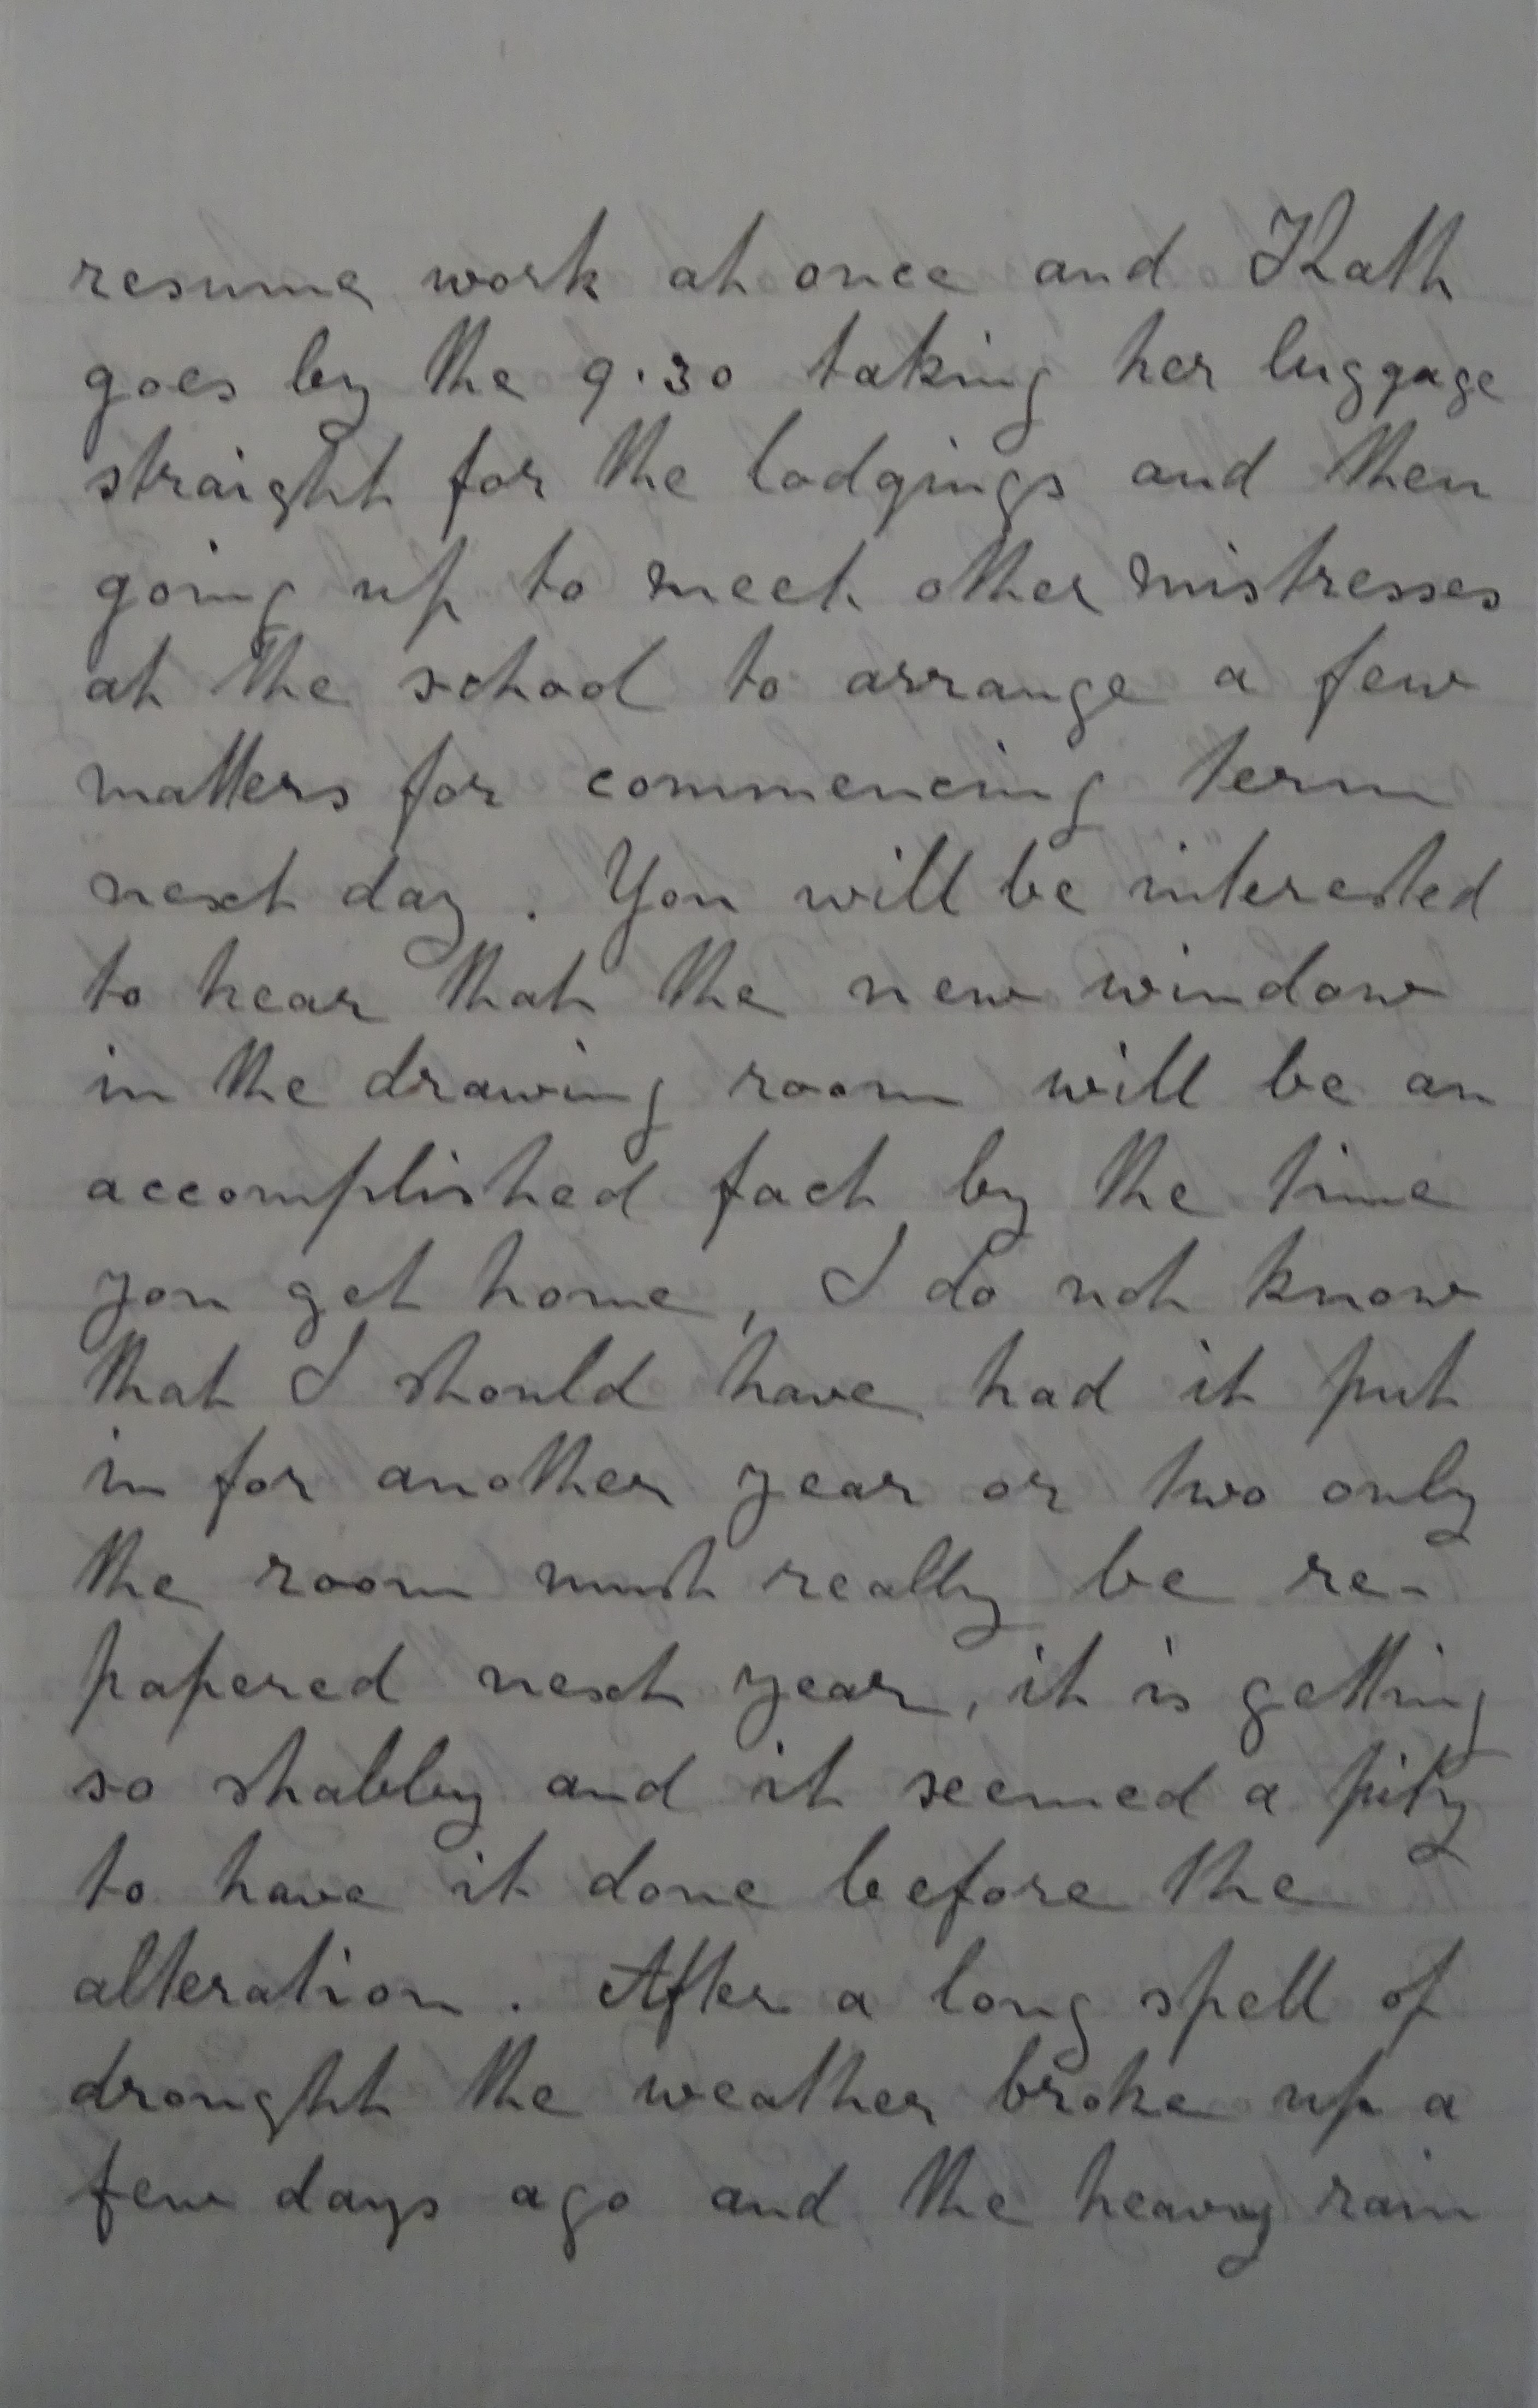 resume work at once and Kath
goes by the 9.30 taking her luggage
straight for the lodgings and then
going up to meet other mistresses
at the school to arrange a few
matters for commencing term
next day. You will be interested
to hear that the new window
in the drawing room will be an
accomplished fact by the time
you get home, I do not know
that I should have had it put
in for another year or two only
the room must really be re-
papered next year, it is getting
so shabby and it seemed a pity
to have it done before the
alteration. After a long spell of
drought the weather broke up a
few days ago and the heavy rain